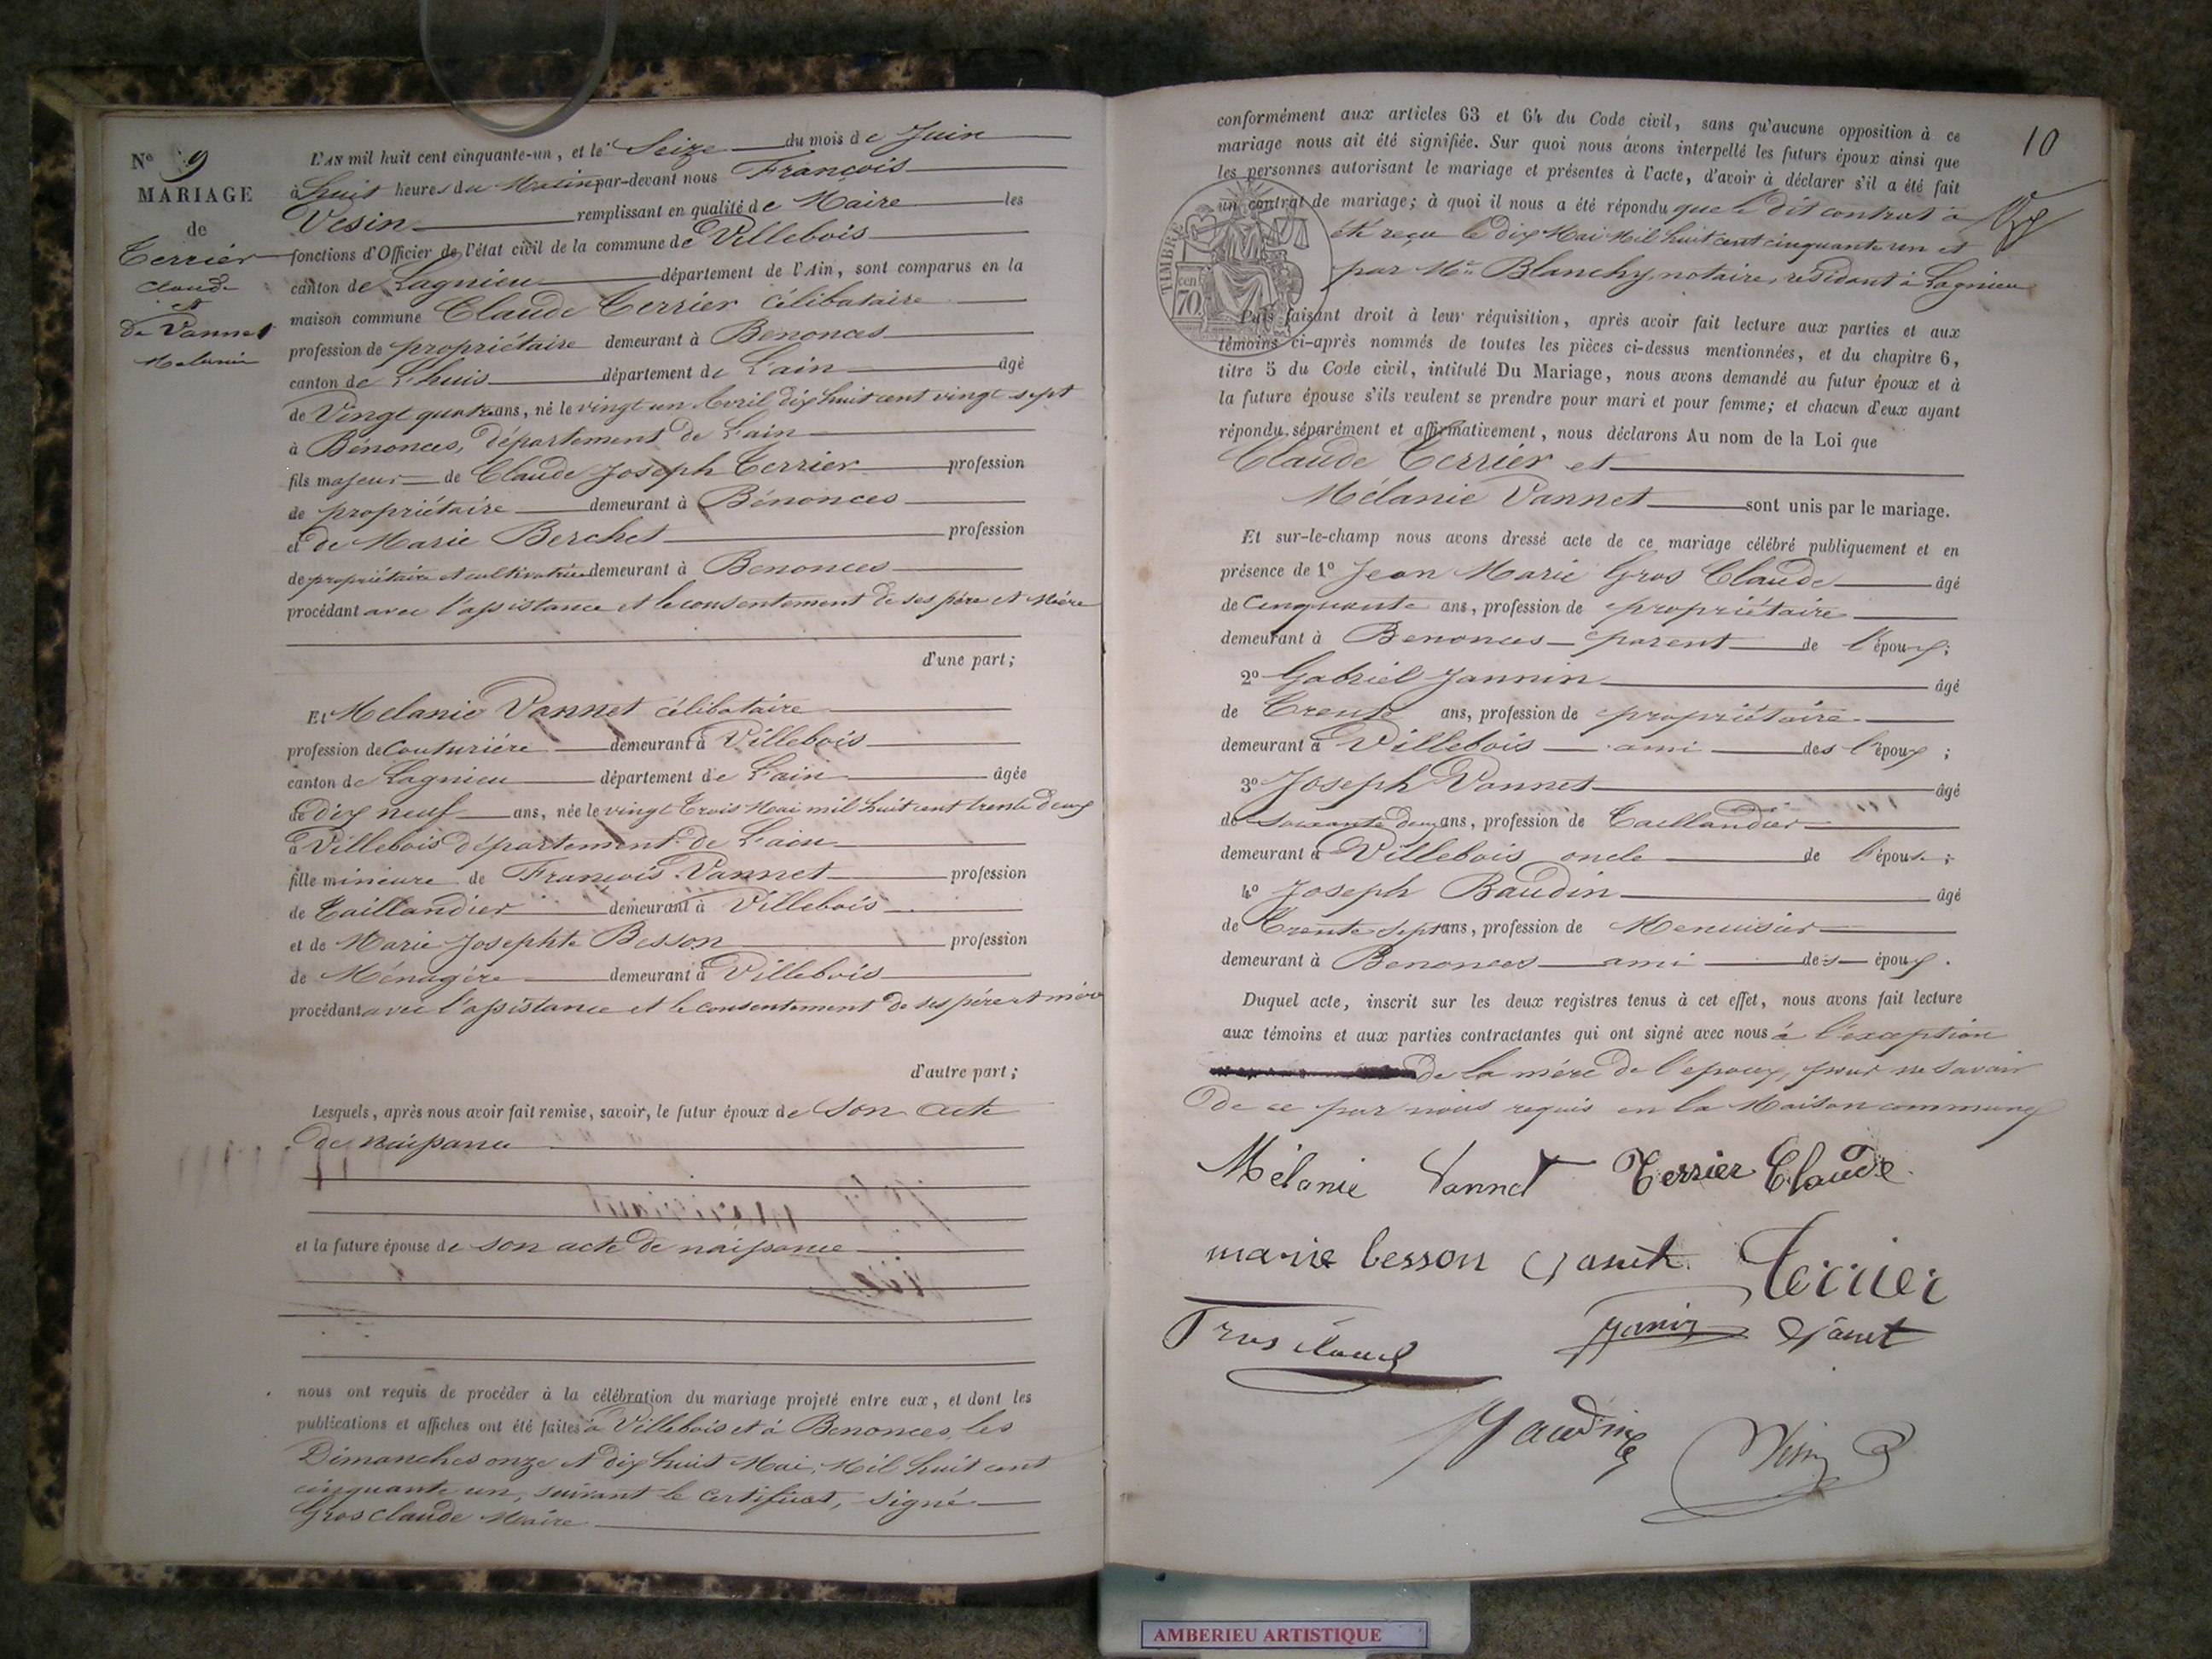 N° 9
MARIAGE
de
Terrier
Claude
et
de Vannet
Melanie
L'AN mil huit cent cinquante-un, et le Seize du mois de Juin
à huit heures du Matin par-devant nous François
Vesin remplissant en qualité de Maire les
fonctions d'Officier de l'état civil de la commune de Villebois
canton de Lagnieu département de l'Ain, sont comparus en la
maison commune Claude Terrier célibataire
profession de propriétaire demeurant à Benonces
canton de L'huis département de L'ain âgé
de Vingt quatre ans, né le vingt un Avril dix huit cent vingt sept
à Bénonces, département de L'ain
fils majeur de Claude Joseph Terrier profession
de propriétaire demeurant à Bénonces
et de Marie Berchet profession
de propriétaire et cultivatrice demeurant à Benonces
procédant avec l'assistance et le consentement de ses père et Mère
d'une part;
Et Melanie Vannet célibataire
profession de Couturiére demeurant à Villebois
canton de Lagnieu département de L'ain âgée
de dix neuf ans, née le vingt Trois Mai mil huit cent trente deux
à Villebois département de L'ain
fille mineure de François Vannet profession
de Taillandier demeurant à Villebois
et de Marie Josephte Besson profession
de Ménagère demeurant à Villebois
procédant avec l'assistance et le consentement de ses père et mère
d'autre part;
Lesquels, après nous avoir fait remise, savoir, le futur époux de son acte
de naissance
et la future épouse de son acte de naissance
nous ont requis de procéder à la célébration du mariage projeté entre eux, et dont les
publications et affiches ont été faites à Villebois et à Benonces, les
Dimanches onze et dix huit Mai, Mil huit cent
cinquante un, suivant le certificat, signé
Gros Claude Maire
10
conformément aux articles 63 et 64 du Code civil, sans qu'aucune opposition à ce
mariage nous ait été signifiée. Sur quoi nous avons interpellé les futurs époux ainsi que
les personnes autorisant le mariage et présentes à l'acte, d'avoir à déclarer s'il a été fait
un contrat de mariage; à quoi il nous a été répondu que le dit contrat a
été reçu le dix Mai Mil huit cent cinquante un et
par Me Blanchy, notaire, résidant à Lagnieu
TIMBRE
70 cen
Puis faisant droit à leur réquisition, après avoir fait lecture aux parties et aux
témoins ci-après nommés de toutes les pièces ci-dessus mentionnées, et du chapitre 6,
titre 5 du Code civil, intitulé Du Mariage, nous avons demandé au futur époux et à
la future épouse s'ils veulent se prendre pour mari et pour femme; et chacun d'eux ayant
répondu séparément et affirmativement, nous déclarons Au nom de la Loi que
Claude Terrier et
Mélanie Vannet sont unis par le mariage.
Et sur-le-champ nous avons dressé acte de ce mariage célébré publiquement et en
présence de 1° Jean Marie Gros Claude âgé
de Cinquante ans, profession de propriétaire
demeurant à Benonces parent de l'époux;
2° Gabriel Jannin âgé
de Trente ans, profession de propriétaire
demeurant à Villebois ami des l'époux;
3° Joseph Vannet âgé
de soixante deux ans, profession de Taillandier
demeurant à Villebois oncle de l'épouse;
4° Joseph Baudin âgé
de Trente sept ans, profession de Menuisier
demeurant à Benonces ami des époux.
Duquel acte, inscrit sur les deux registres tenus à cet effet, nous avons fait lecture
aux témoins et aux parties contractantes qui ont signé avec nous à l'exception
de la mère de l'époux, pour ne savoir
De ce par nous requis en la Maison commune
Mélanie Vannet Terrier Claude
marie besson Terrier
AMBERIEU ARTISTIQUE